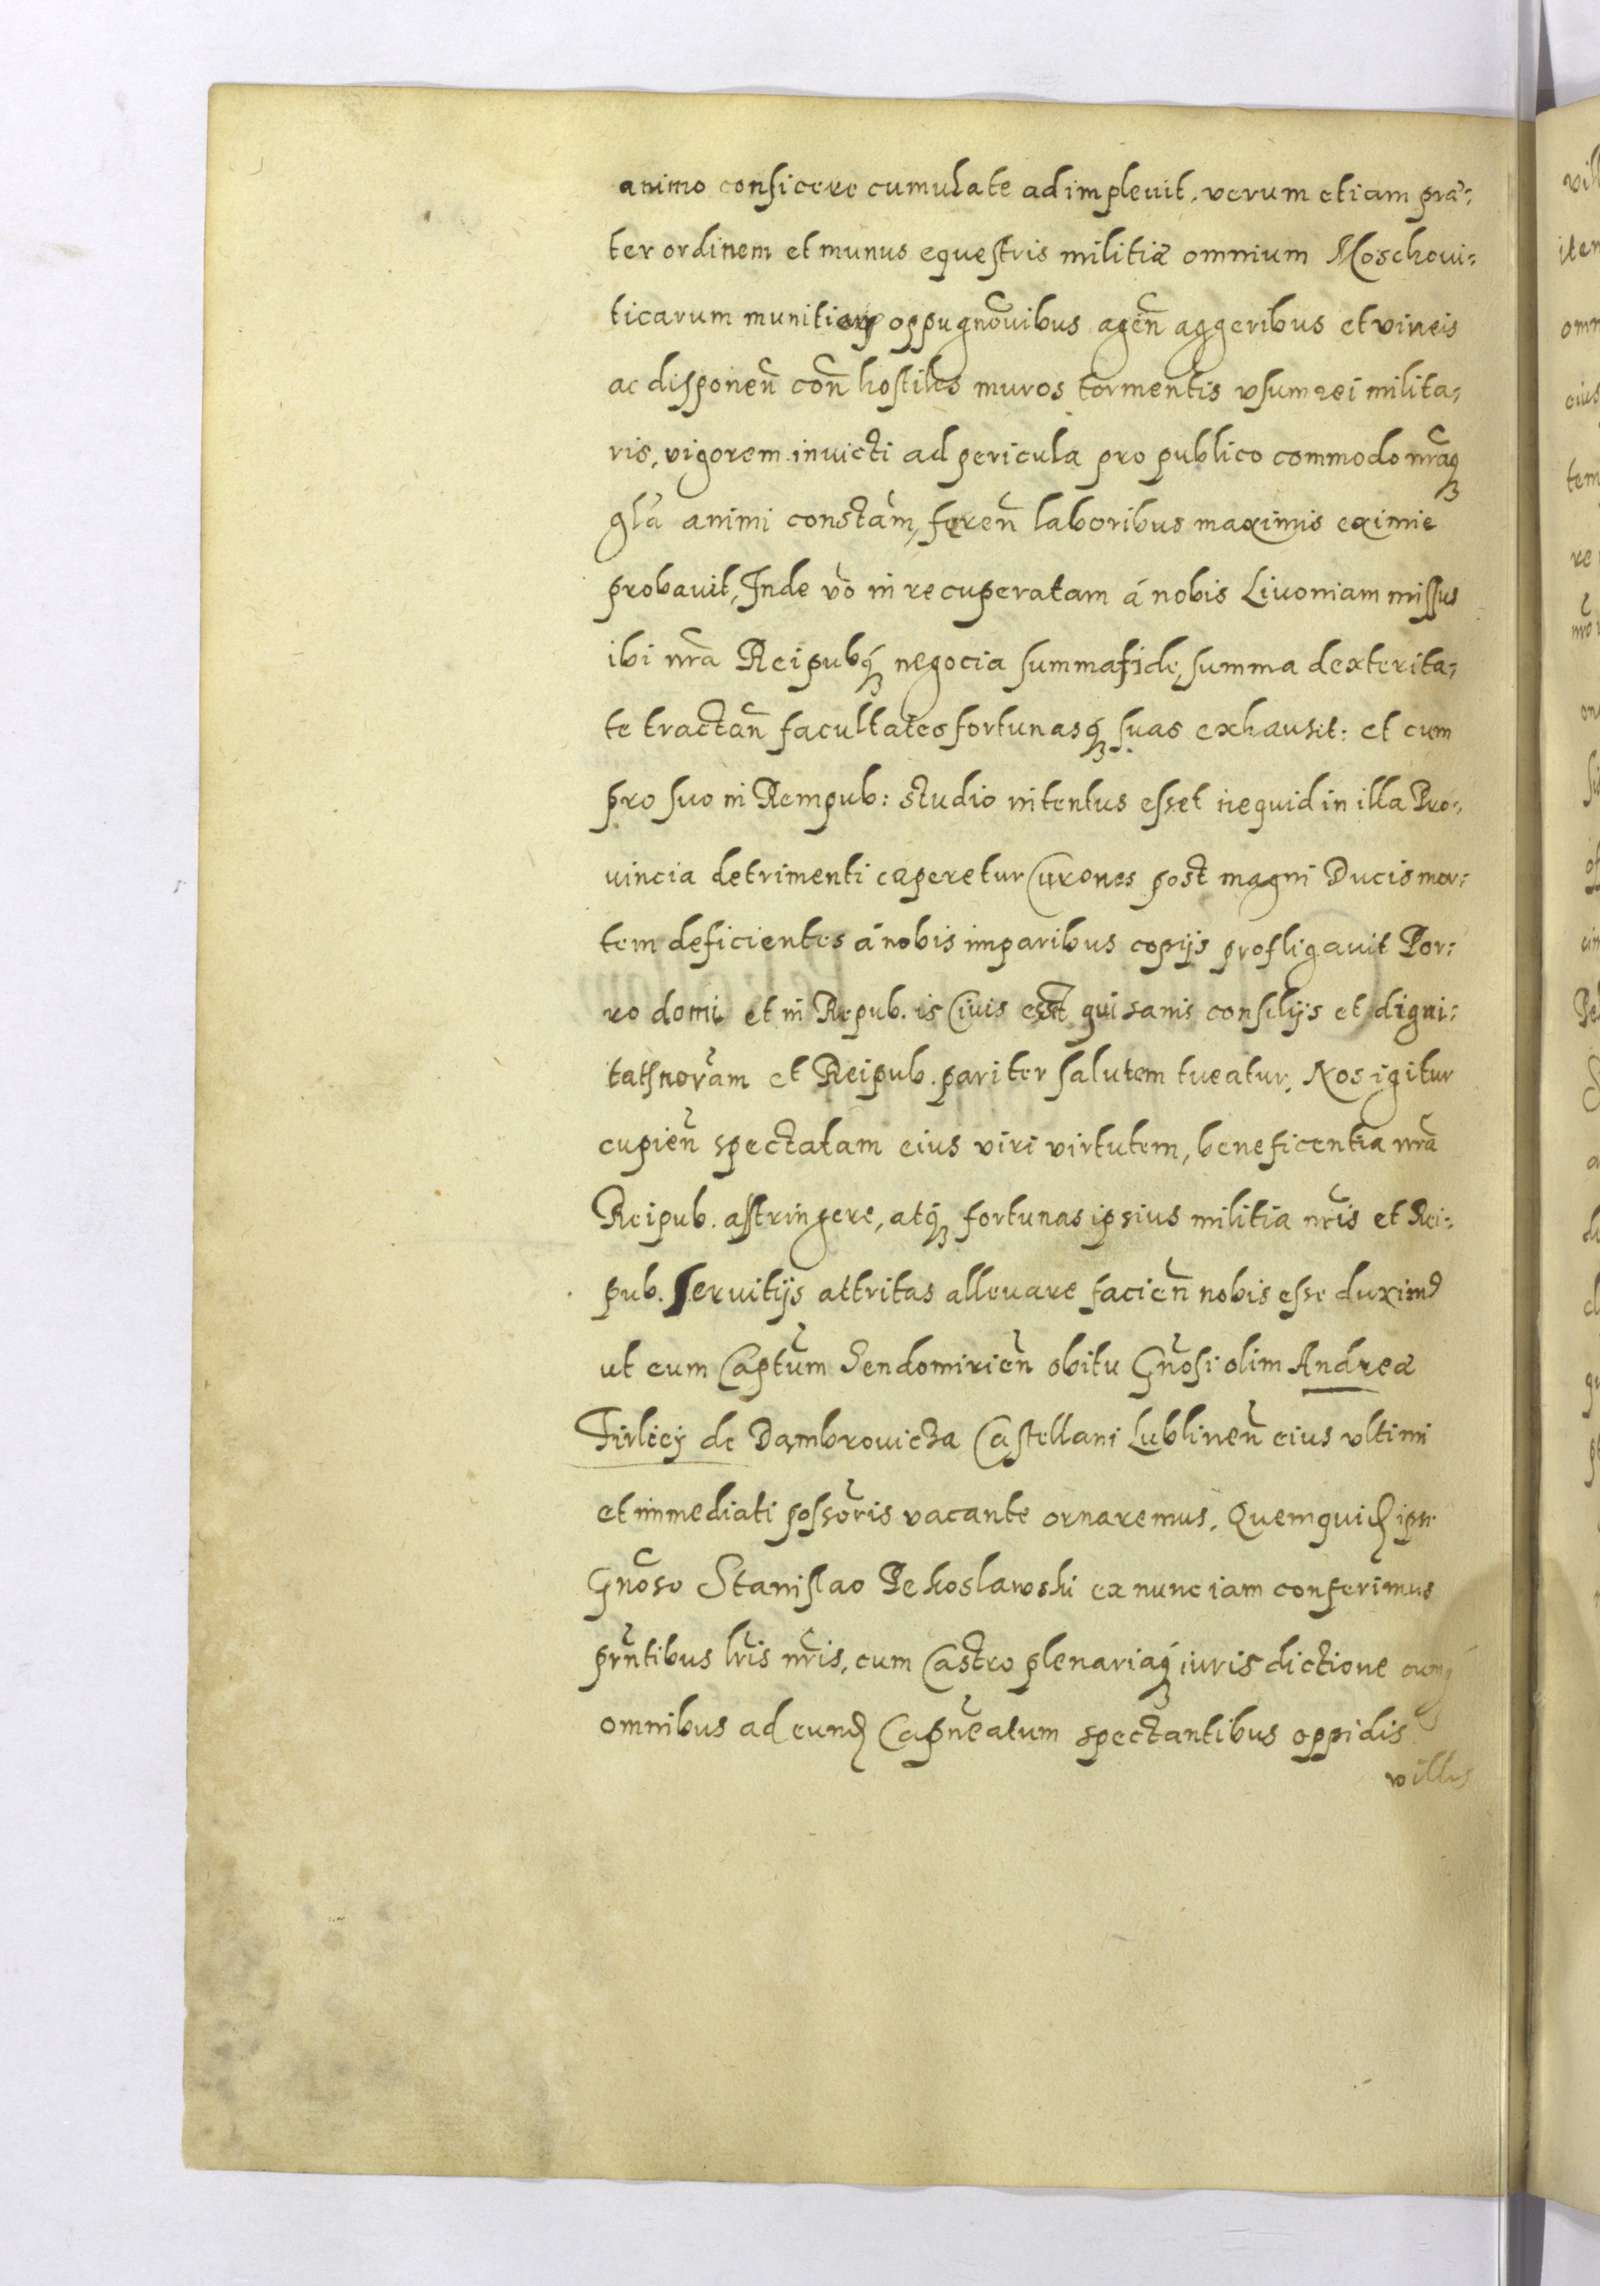 animo conficere cumulate adimplevit, verum etiam præ=
ter ordinem et munus equestris militiæ omnium Moschovi=
ticarum munition oppugnõnibus ageñ aggeribus et vineis
ac disponeñ coñ hostiles muros tormentis vsum rei milita=
ris, vigorem invicti ad pericula pro publico commodo nrãq
glã animi constãm, fereñ laboribus maximis eximie
probavit, Inde võ in recuperatam á nobis Livoniam missus
ibi nrã Reipubq negocia summa fide, summa dexterita=
te tractañ facultates fortunasq suas exhausit: et cum
pro suo in Rempub: studio intentus esset nequid in illa Pro=
vincia detrimenti caperetur Curones post magni Ducis mor=
tem deficientes á nobis imparibus copijs profligavit Por=
ro domi et in Repub. is Civis est qui sanis consilijs et digni=
tatẽ norãm et Reipub. pariter salutem tueatur. Nos igitur
cupieñ spectatam eius viri virtutem, beneficentia nrã
Reipub. astringere, atq fortunas ipsius militia nrĩs et Rei=
pub. servitijs attritas allevare facieñ nobis esse duximꝰ
ut eum Captũm Sendomirieñ obitu Gñosi olim Andreæ
Firlieÿ de Dambrovicza Castellani Lublineñ eius vltimi
et immediati possõris vacante ornaremus. Quemquid ipsi
Gñoso Stanislao Pekoslawski ex nunc iam conferimus
prñtibus lrĩs nrĩs, cum Castro plenariaq iurisdictione
omnibus ad eund Capñeatum spectantibus oppidis
villis